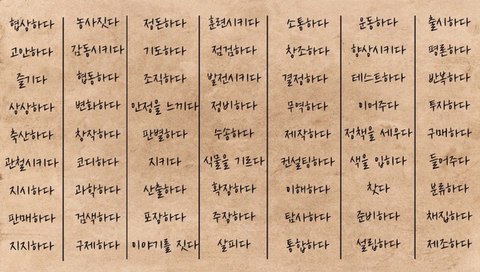 협상하다 농사짓다 정돈하다 훈련시키다 소통하다 운동하다 출시하다
고안하다 감동시키다 기도하다 점검하다 창조하다 향상시키다 평론하다
즐기다 협동하다 조직하다 발전시키다 결정하다 테스트하다 반복하다
상상하다 변화하다 안정을 느끼다 정비하다 무역하다 이어주다 투자하다
축산하다 창작하다 판별하다 수송하다 제작하다 정책을 세우다 구매하다
관철시키다 코디하다 지키다 식물을 기르다 컨설팅하다 색을 입히다 들어주다
지시하다 과학하다 산출하다 확장하다 이해하다 찾다 분류하다
판매하다 검색하다 포장하다 주장하다 탐사하다 준비하다 채집하다
지지하다 구제하다 이야기를 짓다 살피다 통합하다 설립하다 제조하다